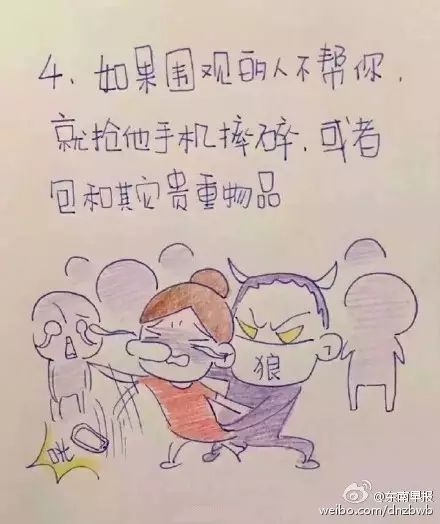 4、如果围观的人不帮你，
就抢他手机摔碎，或者
包和其它贵重物品
狼
咣
@东南早报
weibo.com/dnzbwb